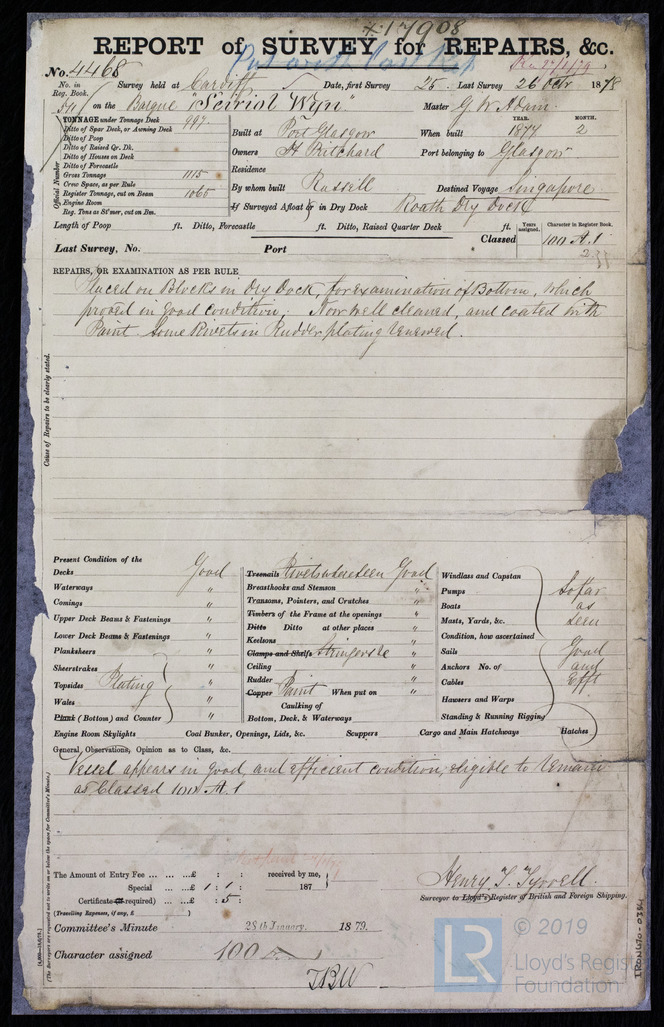 # 17908
REPORT of SURVEY for REPAIRS, &c.
No. 4468
No. in Reg. Book. Survey held at Cardiff Date, first Survey 25 Last Survey 26 Octr 1878
541 on the Barque "Seiriol Wyn" Master G. W. Adam
TONNAGE under Tonnage Deck 997
Ditto of Spar Deck, or Awning Deck
Ditto of Poop
Ditto of Raised Qr. Dk.
Ditto of Houses on Deck
Ditto of Forecastle
Gross Tonnage 1115
Crew Space, as per Rule
Register Tonnage, cut on Beam 1065
Engine Room
Reg. Tons as St'mer, cut on Bm.
Official Number
Built at Port Glasgow When built YEAR. 1877 MONTH. 2
Owners H Pritchard Port belonging to Glasgow
Residence
By whom built Russell Destined Voyage Singapore
If Surveyed Afloat or in Dry Dock Roath Dry Dock
Length of Poop ft. Ditto, Forecastle ft. Ditto, Raised Quarter Deck ft.
Years assigned. Character in Register Book.
Last Survey, No. Port Classed 100 A.1
2.77
REPAIRS, OR EXAMINATION AS PER RULE
Placed on Blocks in Dry Dock, for examination of Bottom, which
proved in good condition. Now well cleaned, and coated with
Paint. Some Rivets in Rudder plating renewed.
Cause of Repairs to be clearly stated.
Present Condition of the
Decks Good
Waterways "
Comings "
Upper Deck Beams & Fastenings "
Lower Deck Beams & Fastenings "
Planksheers "
Sheerstrakes "
Topsides Plating "
Wales "
Plank (Bottom) and Counter "
Treenails Rivets where seen Good
Breasthooks and Stemson "
Transoms, Pointers, and Crutches "
Timbers of the Frame at the openings "
Ditto Ditto at other places "
Keelsons "
Clamps and Shelfs Stringers &c "
Ceiling "
Rudder "
Copper Paint When put on "
Caulking of
Bottom, Deck, & Waterways
Windlass and Capstan
Pumps So far
Boats as
Masts, Yards, &c. seen
Condition, how ascertained
Sails Good
Anchors No. of and
Cables Efft
Hawsers and Warps
Standing & Running Rigging
Engine Room Skylights Coal Bunker, Openings, Lids, &c. Scuppers Cargo and Main Hatchways Hatches
General Observations, Opinion as to Class, &c.
Vessel appears in good, and efficient condition, eligible to remain
as Classed 100 A.1
The Amount of Entry Fee ... ... ...£ : : received by me,
Special ... ...£ 1 : 1 : 187
Certificate (if required) ... : 5 :
(Travelling Expenses, if any, £ )
Henry T. Tyrrell.
Surveyor to Lloyd's Register of British and Foreign Shipping.
Committee's Minute 28th January. 1879.
Character assigned 100 A 1
© 2019
LR
Lloyd's Register
Foundation
IRON 670-0384